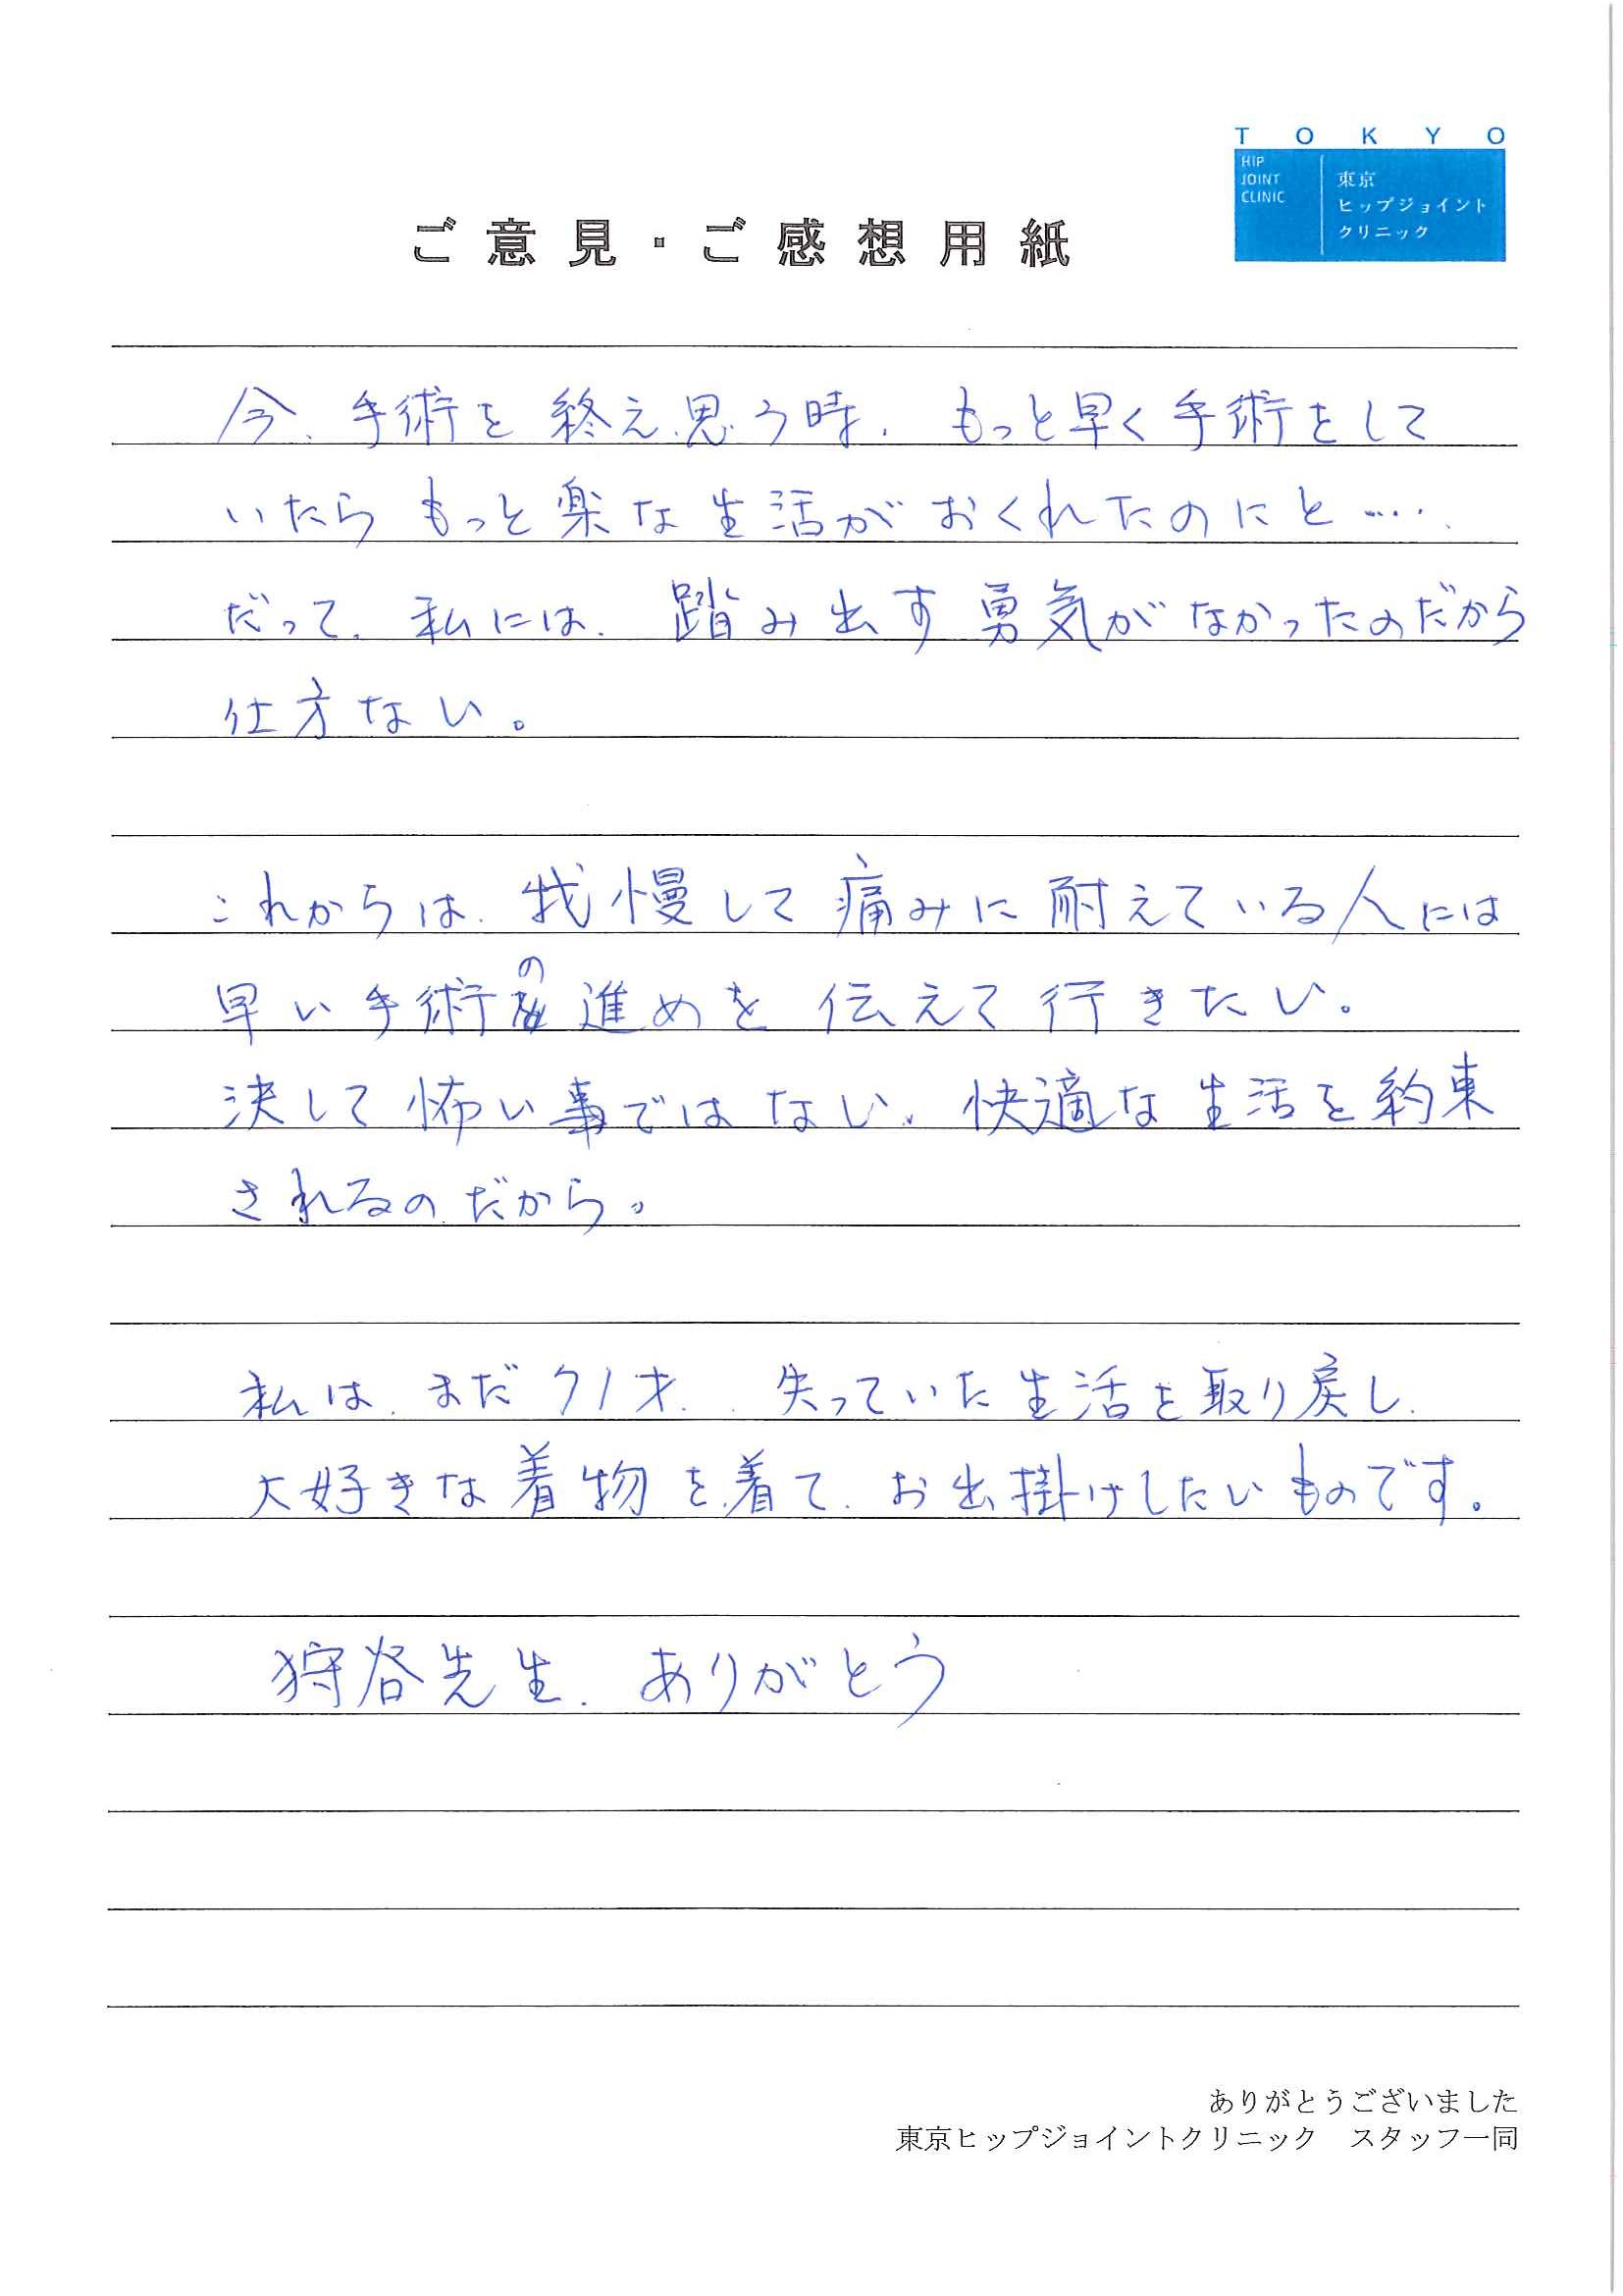 T O K Y O
HIP
JOINT
CLINIC
東京
ヒップジョイント
クリニック
ご意見・ご感想用紙
今、手術を終え、思う時、もっと早く手術をして
いたら もっと楽な生活がおくれたのにと……
だって、私には、踏み出す勇気がなかったのだから
仕方ない。
これからは、我慢して痛みに耐えている人には
早い手術の進めを伝えて行きたい。
決して怖い事ではない、快適な生活を約束
されるのだから。
私は、まだ71才、失っていた生活を取り戻し、
大好きな着物を着て、お出掛けしたいものです。
狩谷先生、ありがとう
ありがとうございました
東京ヒップジョイントクリニック　スタッフ一同